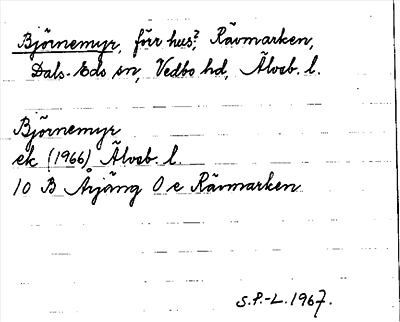 Björnemyr, förr hus?, Rävmarken,
Dals-Eds sn, Vedbo hd, Älvsb. l.
Björnemyr
ek (1966) Älvsb. l.
10 B Årjäng 0 e Rävmarken
S.P.-L. 1967.